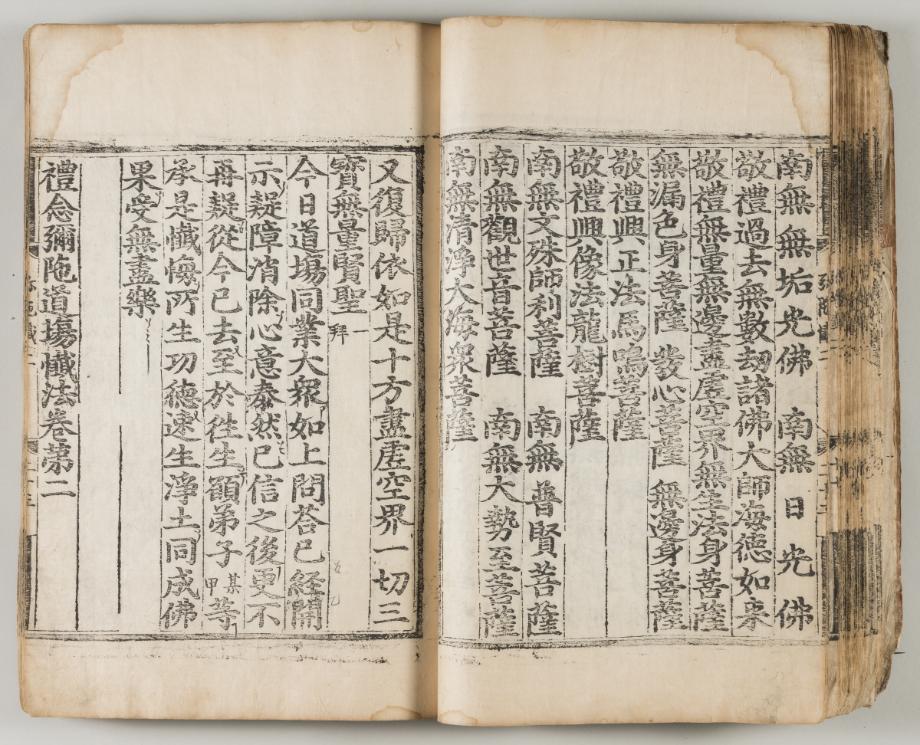 南無無垢光佛　南無日光佛
敬禮過去無數劫諸佛大師海德如來
敬禮無量無邊盡虛空界無生法身菩薩
無漏色身菩薩　發心菩薩　無邊身菩薩
敬禮興正法馬鳴菩薩
敬禮興像法龍樹菩薩
南無文殊師利菩薩　南無普賢菩薩
南無觀世音菩薩　南無大勢至菩薩
南無清淨大海衆菩薩
又復歸依如是十方盡虛空界一切三
寶無量賢聖一拜
今日道場同業大衆如上問答已經開
示疑障消除心意泰然已信之後更不
再疑從今已去至於往生願弟子某甲等
承是懺悔所生功德速生淨土同成佛
果受無盡樂
禮念彌陁道場懺法卷第二